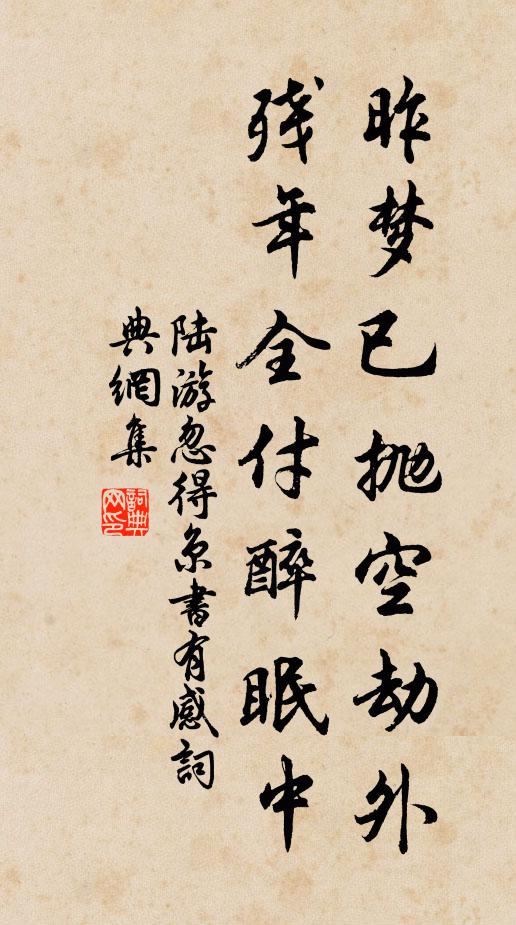 昨梦已抛空劫外
残年全付醉眠中
陆游忽得京书有感詞
典網集
詞典网印